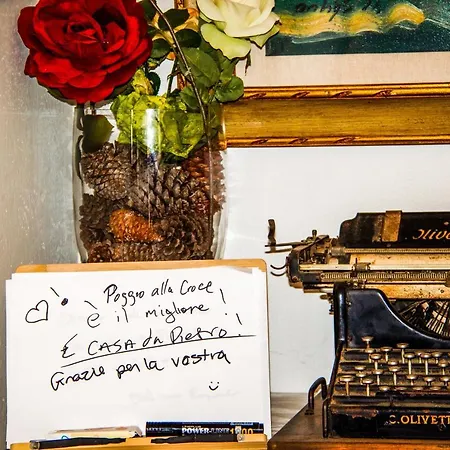 Poggio alla Croce
è il migliore!
È CASA da Pietro!
Grazie per la vostra
:)
POWER-LINER 1200
C. OLIVETTI